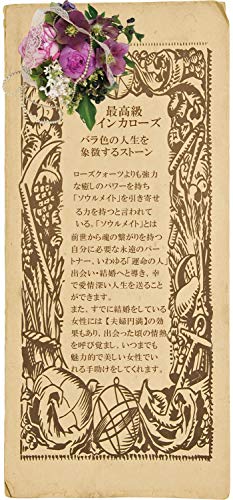 最高級
インカローズ
バラ色の人生を
象徴するストーン
ローズクォーツよりも強力
な癒しのパワーを持ち
「ソウルメイト」を引き寄せ
る力を持つと言われて
いる。「ソウルメイト」とは
前世から魂の繋がりを持つ
自分に必要な永遠のパー
トナー、いわゆる「運命の人」
出会い・結婚へと導き、幸
せで愛情深い人生を送ること
ができます。
また、すでに結婚をしている
女性には【夫婦円満】の効
果もあり、出会った頃の情熱
を呼び覚まし、いつまでも
魅力的で美しい女性でい
れる手助けをしてくれます。